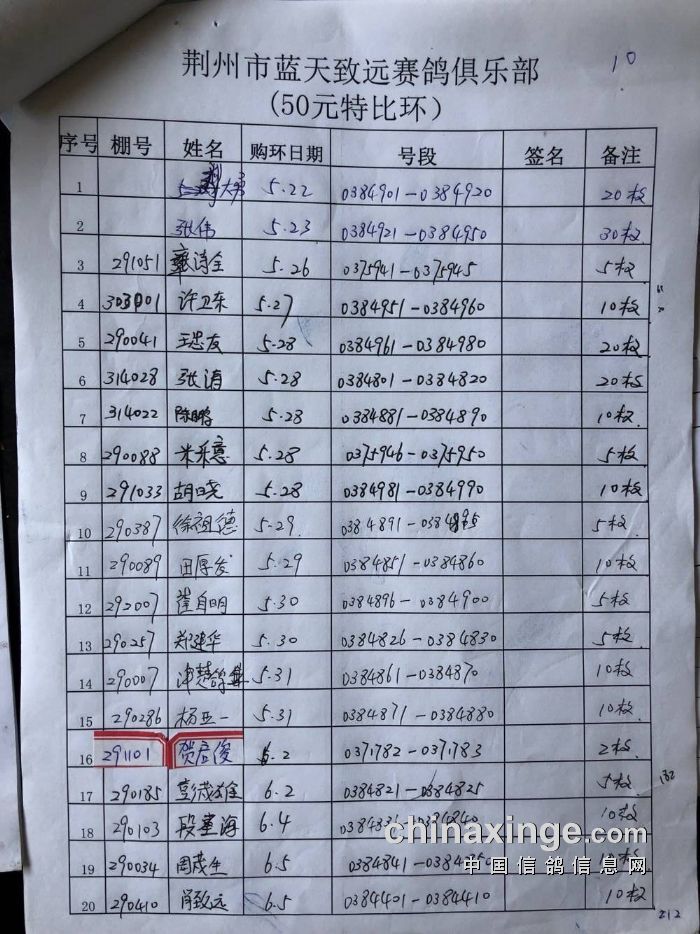 10
荆州市蓝天致远赛鸽俱乐部
(50元特比环)
序号 棚号 姓名 购环日期 号段 签名 备注
1 大 5.22 0384901-0384920 20枚
2 张伟 5.23 0384921-0384950 30枚
3 291051 涛全 5.26 0375941-0375945 5枚
4 303001 许卫东 5.27 0384951-0384960 10枚
5 290041 王忠友 5.28 0384961-0384980 20枚
6 314028 张涛 5.28 0384801-0384820 20枚
7 314022 陈鹏 5.28 0384881-0384890 10枚
8 290088 米乐意 5.28 0375946-0375950 5枚
9 291033 胡晓 5.28 0384981-0384990 10枚
10 290387 徐祖德 5.29. 0384891- 5枚
11 290089 田厚发 5.29 0384851-0384860 10枚
12 292007 崔自明 5.30 0384896-0384900 5枚
13 290257 郑建华 5.30 0384826-0384830 5枚
14 290007 楚 5.31 0384861-0384870 10枚
15 290286 杨亚一 5.31 0384871-0384880 10枚
16 291101 贺启俊 6.2 0371782-0371783 2枚
17 290185 彭茂雄 6.2 0384821-0384825 5枚
132
18 290103 段 海 6.4 10枚
chinaxinge.com
19 290034 周茂生 6.5 0384841-
中国信鸽信息网
20 290410 肖致远 6.5 0384401-0384410 10枚
212